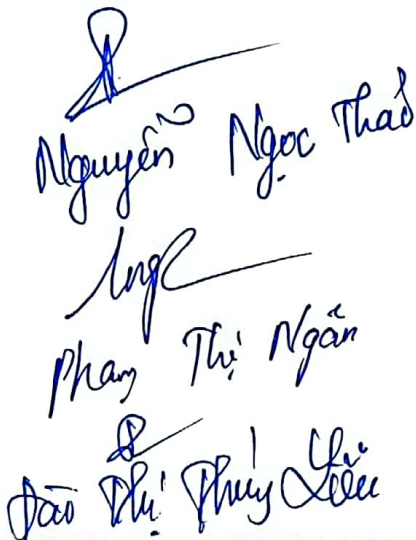 Nguyễn Ngọc Thảo
Phạm Thị Ngân
Đào Thị Thúy Liễu